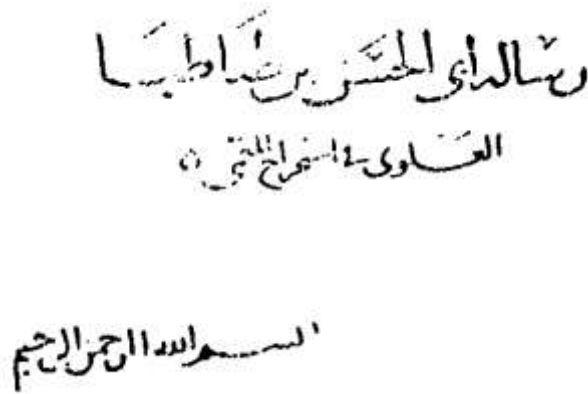 رساله ابى الحسن بن طباطبا
العلوى فى استخراج المعمى
بسم الله الرحمن الرحيم